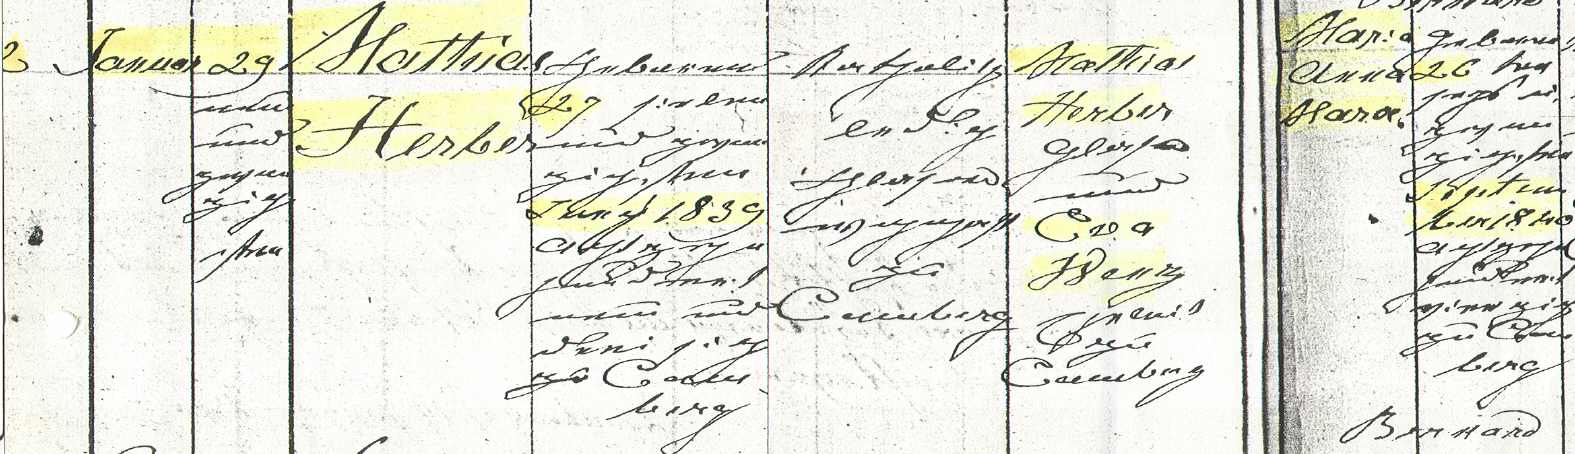 2
Januar
29
neun
und
zwan
zig
sten
Mathias
Herber
Geboren
27 sieben
und zwan
zigsten
Juny 1839
achtzehn
hundert
neun und
dreisig
zu Cam
berg
Katholisch
ledig
zu
Camberg
Mathias
Herber
Glaser
und
Eva
Wenz
zu
Camberg
Maria
Anna
Mara.
Geboren
26 den
sechs u.
zwan
zigsten
Septem
ber 1840
achtzehn
hundert
vierzig
zu Cam
berg
Bernard